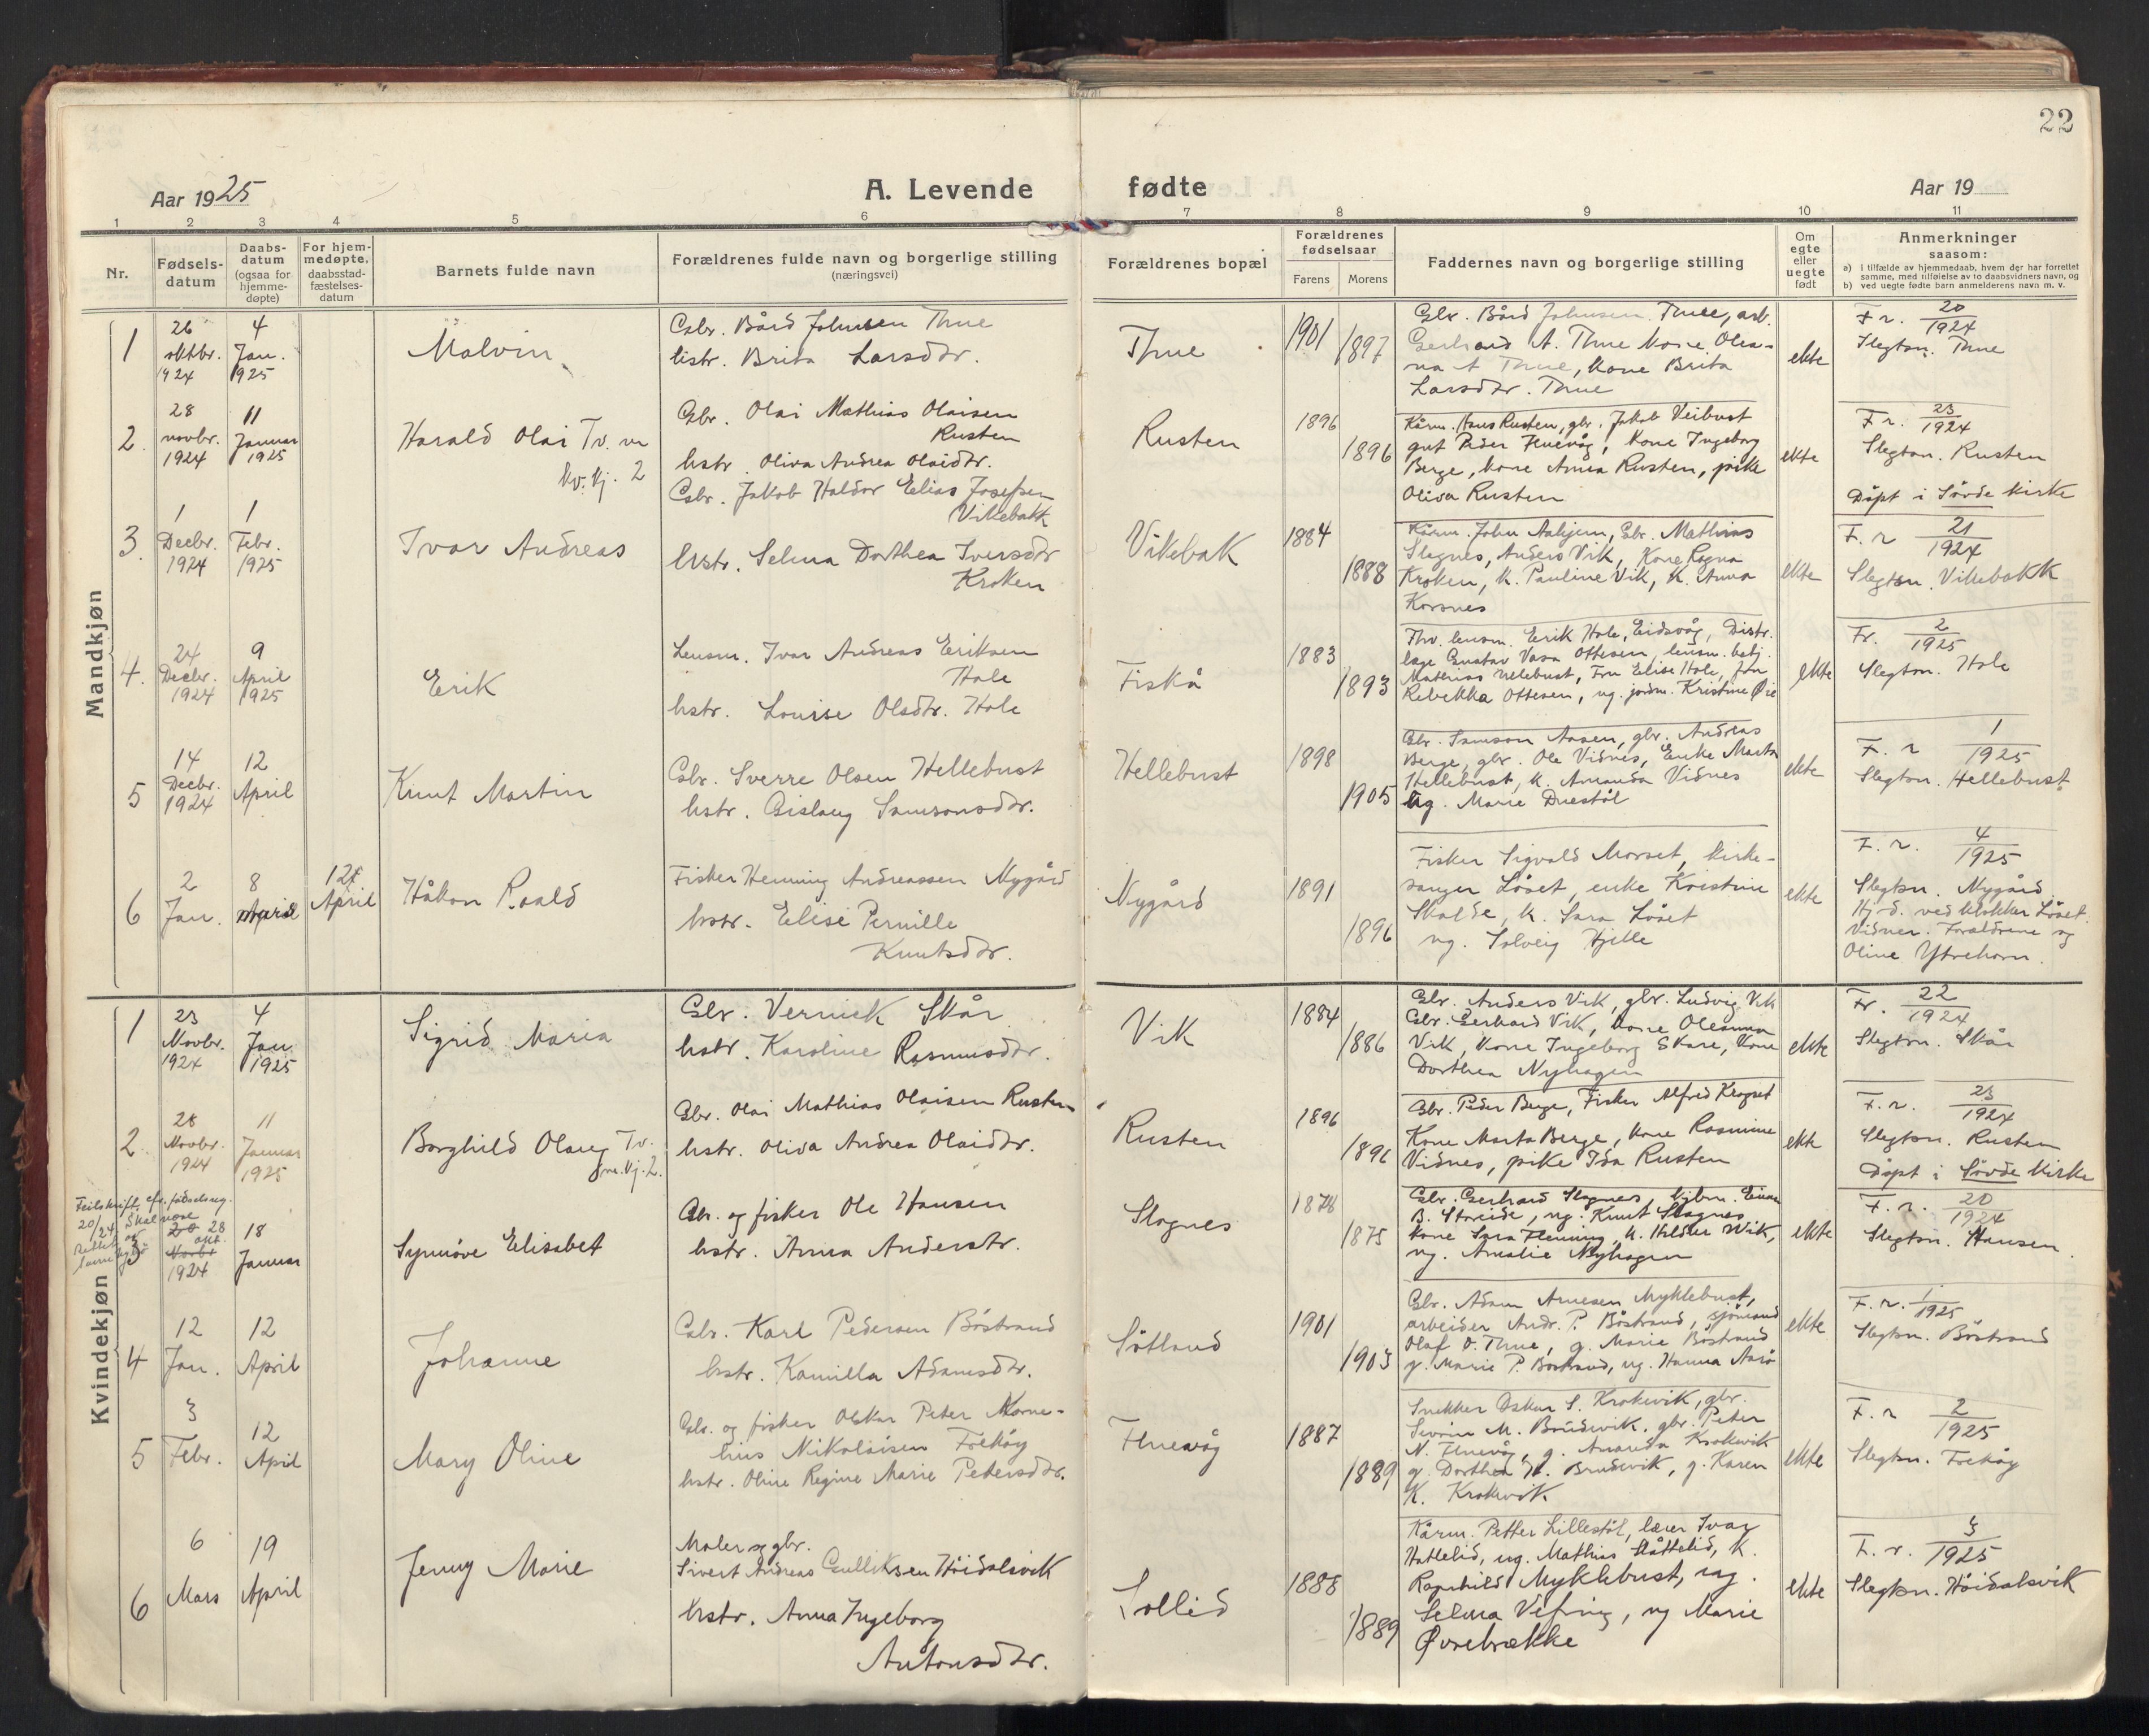 22
Aar 1925
A. Levende
fødte
Aar 19
1 2 3 4 5 6 7 8 9 10 11
Nr.
Fødsels-
datum
Daabs-
datum
(ogsaa for
hjemme-
døpte)
For hjem-
medøpte,
daabsstad-
fæstelses-
datum
Barnets fulde navn
Forældrenes fulde navn og borgerlige stilling
(næringsvei)
Forældrenes bopæl
Forældrenes
fødselsaar
Farens
Morens
Faddernes navn og borgerlige stilling
Om
egte
eller
uegte
født
Anmerkninger
saasom:
a) i tilfælde av hjemmedaab, hvem der har forrettet
samme, med tilføielse av to daabsvidners navn, og
b) ved uegte fødte barn anmelderens navn m. v.
Mandkjøn
1
26
oktbr.
1924
4
Jan.
1925
Malvin
Gbr. Bård Johnsen Thue
hstr. Brita Larsdtr.
Thue
1901
1897
Gbr. Bård Johnsen Thue, arb.
Gerhard A. Thue Kone Olea-
na A Thue, Kone Brita
Larsdtr. Thue
ekte
F r. 20/1924
Slegtsn. Thue
2
28
novbr.
1924
11
Januar
1925
Harald Olai Tv. m
kv.kj. 2
Gbr. Olai Mathias Olaisen
Rusten
hstr. Oliva Andrea Olaidtr.
Rusten
1896
1896
Kårm. Hans Rusten, gbr. Jakob Veibust
gut Peder Fluevåg, Kone Ingeborg
Berge, kone Anna Rusten, pike
Oliva Rusten
ekte
F r. 23/1924
Slegtsn. Rusten
Döpt i Sövde kirke
3.
1
Decbr.
1924
1
Febr.
1925
Ivar Andreas
Gbr. Jakob Haldor Elias Josefsen
Vikebakk
hstr. Selma Dorthea Iversdtr
Kroken
Vikebak
1884
1888
Kårm. John Aahjem, Gbr. Mathias
Slagnes, Anders Vik, Kone Ragna
Kroken, K. Pauline Vik, K. Anna
Korsnes
ekte
F. r 21/1924
Slegtsn. Vikebakk
4.
24
Decbr.
1924
9
April
1925
Erik
Lensm. Ivar Andreas Eriksen
Hole
hstr. Louise Olsdtr. Hole
Fiskå
1883
1893
Fhv. lensm. Erik Hole, Eidsvåg, Distr.
læge Gustav Vasa Ottesen, lensm. betj.
Mathias Hellebust, Fru Elise Hole, fru
Rebekka Ottesen, ug. jordm. Kristine Øie
ekte
Fr. 2/1925
Slegtsn. Hole
5
14
Decbr.
1924
12
April
Knut Martin
Gbr. Sverre Olsen Hellebust
hstr. Gislaug Samsonsdtr.
Hellebust
1898
1905
Gbr. Samson Aasen, gbr. Andreas
Berge, gbr. Ole Vidnes, Enke Marta
Hellebust, K. Amanda Vidnes
ug. Marie Duestöl
ekte
F. r 1/1925
Slegtsn. Hellebust
6
2
Jan.
8
Mars
12
April
Håkon Roald
Fisker Henning Andreassen Nygård
hstr. Elise Pernille
Knutsdtr.
Nygård
1891
1896
Fisker Sigvald Morset, kirke-
sanger Löset, enke Kristine
Skalde, K. Sara Löset
ug. Solveig Hjelle
ekte
F. r. 4/1925
Slegtsn. Nygård.
Hj-d. ved klokker Löset.
Vidner. Forældrene og
Oline Ytrehorn.
Kvindekjøn
1
23
Novbr.
1924
4
Jan.
1925
Sigrid Maria
Gbr. Vernick Skår
hstr. Karoline Rasmusdtr.
Vik
1884
1886
Gbr. Anders Vik, gbr. Ludvig Vik
Gbr. Gerhard Vik, Kone Olesanna
Vik, Kone Ingeborg Skare, Kone
Dorthea Nyhagen
ekte
Fr. 22/1924
Slegtsn. Skår
2.
28
Novbr.
1924
11
Januar
1925
Borghild Olaug Tv.
m.kj. 2.
Gbr. Olai Mathias Olaisen Rusten
hstr. Oliva Andrea Olaidtr.
Rusten
1896
1896
Gbr. Peder Berge, Fisker Alfred Kragset
Kone Marta Berge, Kone Rasmine
Vidnes, pike Ida Rusten
ekte
F. r. 23/1924
Slegtsn. Rusten
Döpt i Sövde kirke
Feilskrift, cfr. fødselsreg.
20/24. Skal være
Rettet av
3
20 28
Novbr okt.
1924
18
Januar
Synnöve Elisabet
Gbr. og fisker Ole Hansen
hstr. Anna Anderstr.
Slagnes
1878
1875
Gbr. Gerhard Slagnes, kjbm. Einar
B. Storeide, ug. Knut Slagnes
kone Sara Fleming, K. Hilda Wik,
ug. Amalie Nyhagen
ekte
F. r. 20/1924
Slegtsn. Hansen.
4
12
Jan.
12
April
Johanne
Gbr. Karl Pedersen Böstrand
hstr. Kamilla Adamsdtr.
Sötland
1901
1903
Gbr. Adam Arnesen Myklebust,
arbeider Andr. P. Böstrand, sjömand
Olaf O. Thue, g. Marie Böstrand
g. Marie P. Böstrand, ug. Hanna Aarö
ekte
F. r. 1/1925
Slegtsn. Böstrand
5
3
Febr.
12
April
Mary Oline
Gbr. og fisker Oskar Peter Korne-
lius Nikolaisen Folköy
hstr. Oline Regine Marie Petersdtr.
Fluevåg
1887
1889
Snekker Oskar S. Krokvik, gbr.
Sivrin M. Brudevik, gbr. Peter
N. Fluevåg, g. Amanda Krokvik
g. Dorthea M. Brudevik, g. Karen
K. Krokvik
ekte
F. r 2/1925
Slegtsn. Folköy
6
6
Mars
19
April
Jenny Marie
Maler og gbr.
Sivert Andreas Gulliksen Höidalsvik
hstr. Anna Ingeborg
Antonsdtr.
Sollid
1888
1889
Kårm. Petter Lillestöl, lærer Ivar
Hattelid, ug. Mathias Slåttelid, K.
Ragnhild Myklebust, ug.
Selma Vefring, ug Marie
Øvrebrække
ekte
F. r. 3/1925
Slegtsn. Höidalsvik